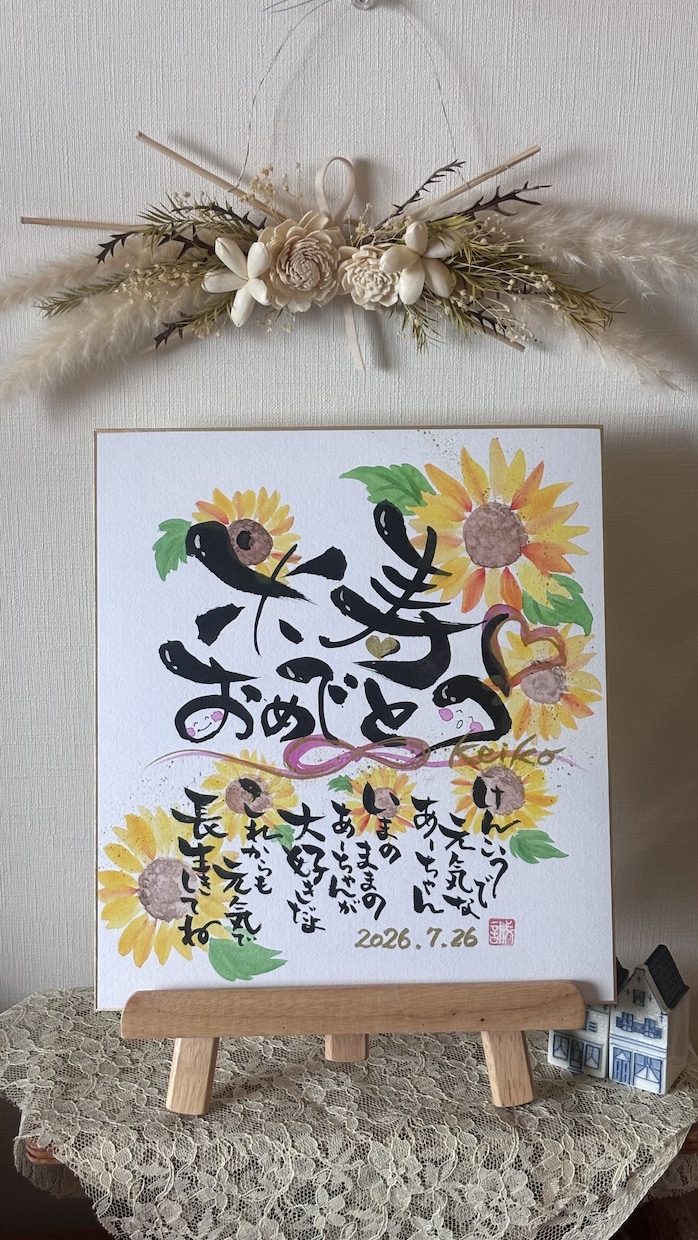 米寿
おめでとう
Keiko
けんこうで
元気な
あーちゃん
いまの
ままの
あーちゃんが
大好きだよ
これからも
元気で
長生きしてね
2026.7.26